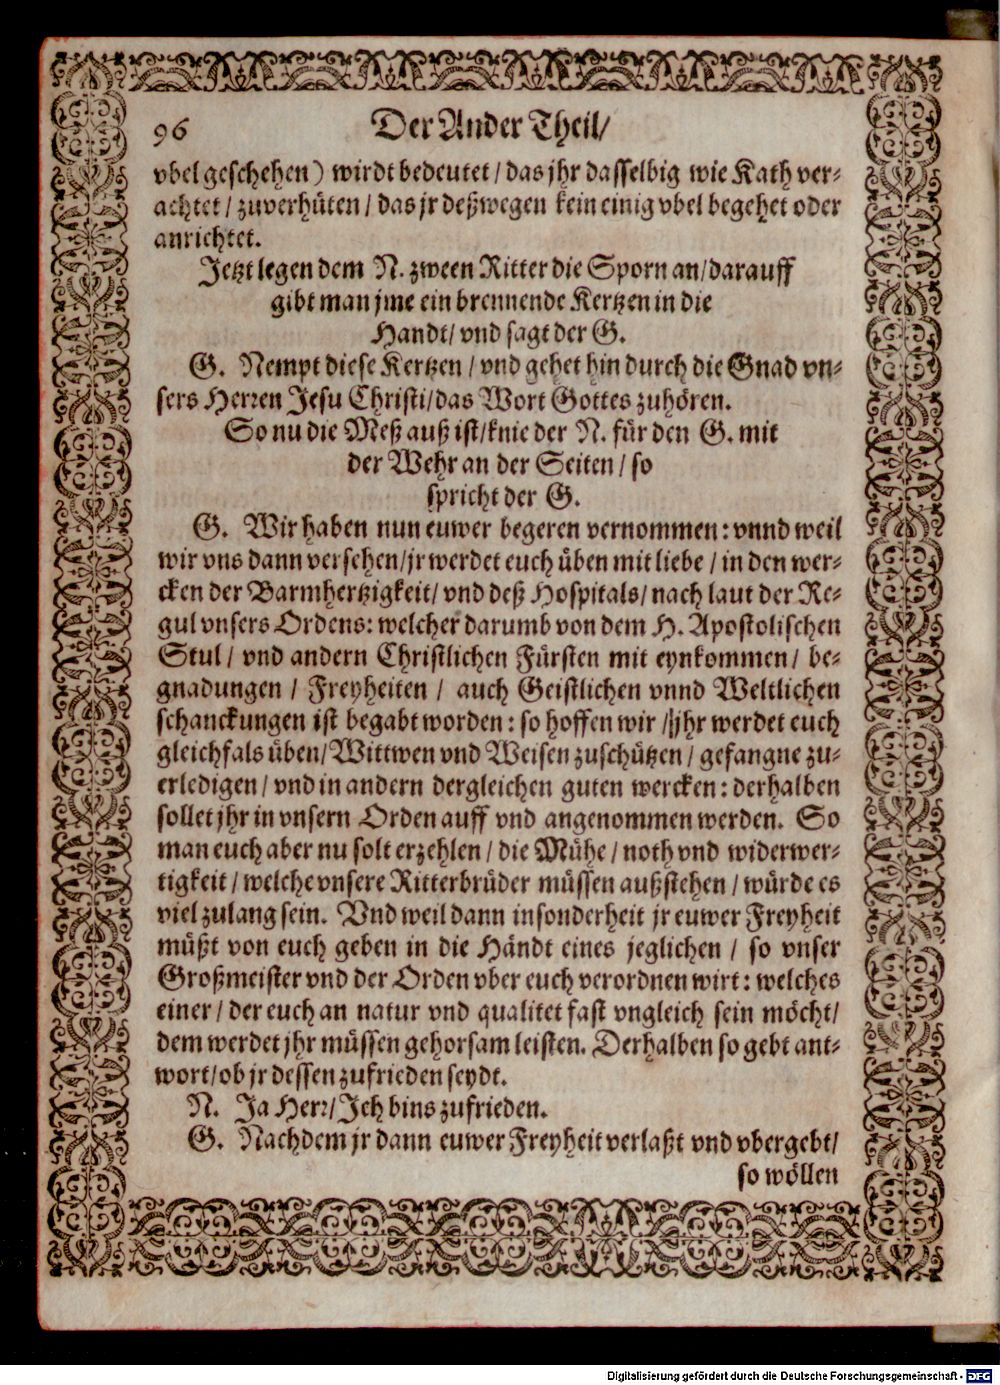 96 Der Ander Theil/
vbel geschehen) wirdt bedeutet / das jhr dasselbig wie Kath ver-
achtet / zuverhüten / das jr deßwegen kein einig vbel begehet oder
anrichtet.
Jetzt legen dem N. zween Ritter die Sporn an/darauff
gibt man jme ein brennende Kertzen in die
Handt/ vnd sagt der G.
G. Nempt diese Kertzen / vnd gehet hin durch die Gnad vn-
sers Herren Jesu Christi/das Wort Gottes zuhören.
So nu die Meß auß ist/knie der N. für den G. mit
der Wehr an der Seiten / so
spricht der G.
G. Wir haben nun euwer begeren vernommen: vnnd weil
wir vns dann versehen/jr werdet euch üben mit liebe / in den wer-
cken der Barmhertzigkeit/ vnd deß Hospitals/ nach laut der Re-
gul vnsers Ordens: welcher darumb von dem H. Apostolischen
Stul / vnd andern Christlichen Fürsten mit eynkommen/ be-
gnadungen / Freyheiten / auch Geistlichen vnnd Weltlichen
schanckungen ist begabt worden: so hoffen wir / jhr werdet euch
gleichfals üben/ Wittwen vnd Weisen zuschützen / gefangne zu-
erledigen / vnd in andern dergleichen guten wercken: derhalben
sollet jhr in vnsern Orden auff vnd angenommen werden. So
man euch aber nu solt erzehlen / die Mühe / noth vnd widerwer-
tigkeit / welche vnsere Ritterbrüder müssen außstehen / würde es
viel zulang sein. Vnd weil dann insonderheit jr euwer Freyheit
müßt von euch geben in die Händt eines jeglichen / so vnser
Großmeister vnd der Orden vber euch verordnen wirt: welches
einer / der euch an natur vnd qualitet fast vngleich sein möcht/
dem werdet jhr müssen gehorsam leisten. Derhalben so gebt ant-
wort/ob jr dessen zufrieden seydt.
N. Ja Herr/ Jch bins zufrieden.
G. Nachdem jr dann euwer Freyheit verlaßt vnd vbergebt/
so wöllen
Digitalisierung gefördert durch die Deutsche Forschungsgemeinschaft - DFG